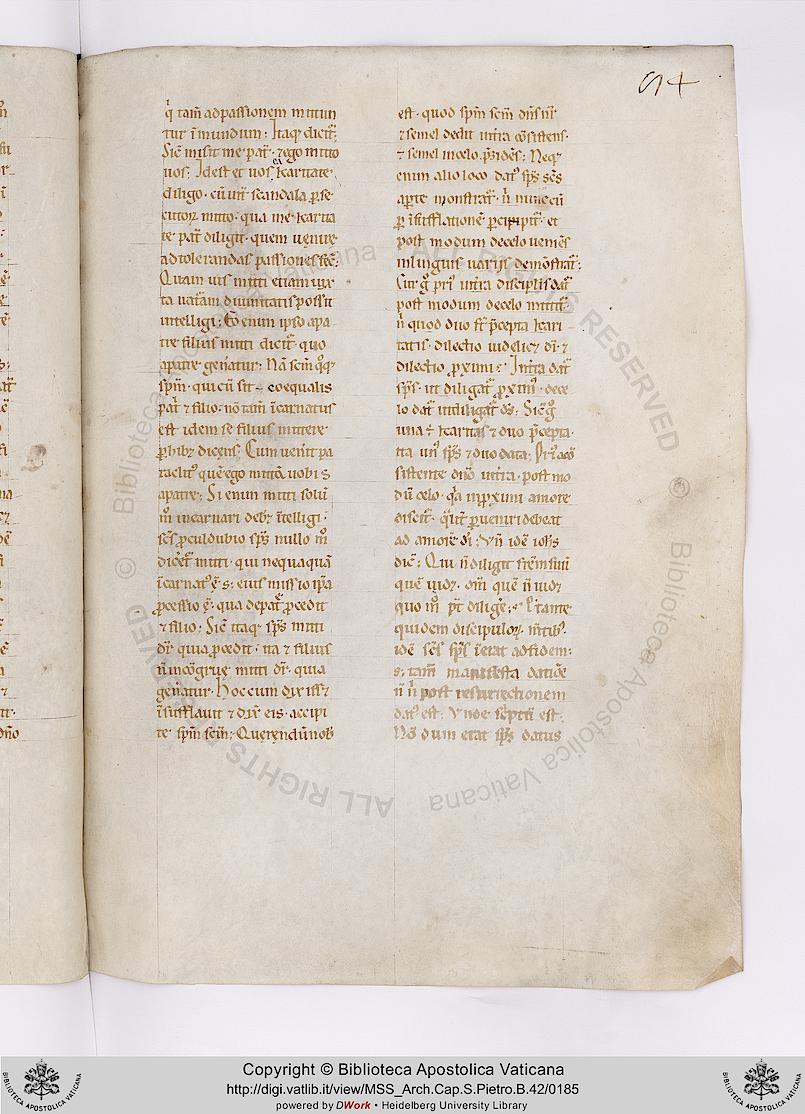 914
q̾ tam̄ ad passionem mittun
tur ī mundum: Itaq; dicit̾:
Sic̄ misit me pat̾ · ⁊ ego mitto
uos: Id est et uos ea karitate
diligo · cū int̾ scandala p̱se
cutoꝝ mitto · qua me karita
te pat̾ diligit · quem uenire
ad tolerandas passiones fec̄:
Quamuis mitti etiam iux
ta natam̄ diuinitatis possit
intelligi: Eo enim ipso a pa
tre filius mitti dicit̾ · quo
a patre gen̾atur: Nā sc̄m q̊q;
sp̄m · qui cū sit coequalis
pat̾ı ⁊ filio · nō tam̄ īcarnatus
est idem se filius mittere
p̱hibꝫ dicens: Cum uen̾it pa
raclit᷒ quē ego mittā uobis
a patre: Si enim mitti solū
m̊ incarnari deb̾ ītelligi ·
sc̄s p̱culdubio sp̄s nullo m̊
dic̾et̾ mitti · qui nequaquā
īcarnat᷒ ē · s; eius missio ip̄a
p̱cessio ē · qua de pat̾ p̱cedit
⁊ filio: Sic̄ itaq; sp̄s mitti
dr̄ quia p̱cedit · ita ⁊ filius
n̄ incōgrue mitti dr̄ · quia
gen̾atur · Hoc cum dixisset
īsufflauit ⁊ dix̄ eis · accipi
te sp̄m sc̄m: Querendū nob̄
est · quod sp̄m sc̄m dn̄s nr̄
⁊ semel dedit in t̾ra cōsistens ·
⁊ semel in celo p̄sidēs: Neq;
enim alio loco dat᷒ sp̄s sc̄s
ap̱te monstrat̾ · n̾ nunc cū
p̱ īsufflationē p̱cipit̾ · et
post modum de celo ueniēs
in linguis uarijs demōstrat̾:
Cur g̊ pri᷒ in t̾ra discip̱lis dat̾
post modum de celo mittit̾:
n̾ quod duo st̄ p̄cepta kari
tatis · dilectio uidelicꝫ dı̄ · ⁊
dilectio p̱ximi: In t̾ra dat̾
sp̄s · ut diligat̾ p̱xim᷒ · de ce
lo dat̾ ut diligat̾ d̄s: Sic̄ g̊
una ē karitas ⁊ duo p̄cepta ·
ita un᷒ sp̄s ⁊ duo data: Pri᷒ a cō
sistente dn̄o in t̾ra · post mo
dū celo · q̾a in p̱ximi amore
discit̾ · qualit̾ p̱ueniri debeat
ad amorē dı̄: Vn̄ idē ioh̄s
dic̄: Qui n̄ diligit frēm suū
quē uidꝫ · dm̄ quē n̄ uidꝫ
quo m̊ pt̄ dilige̾: Et ante
quidem discipuloꝝ m̄tib᷒ ·
idē sc̄s sp̄s in̾at ad fidem ·
s; tam̄ manifesta datiōe
n̄ n̾ post resurrectionem
dat᷒ est: Vnde sc̾ptū est:
Nō dum erat sp̄s datus
Copyright © Biblioteca Apostolica Vaticana
http://digi.vatlib.it/view/MSS_Arch.Cap.S.Pietro.B.42/0185
powered by DWork • Heidelberg University Library